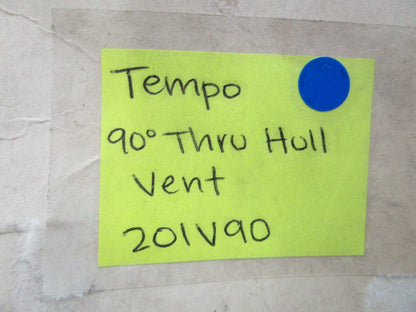 Tempo
90° Thru Hull
Vent
201V90